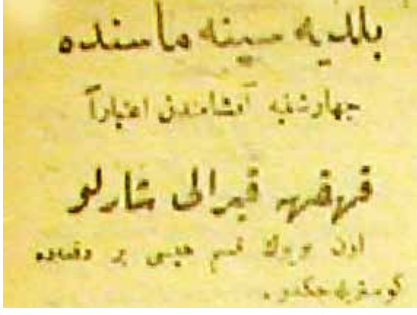 بلديه سينه ماسنده
چهارشنبه آقشامندن اعتباراً
قهقهه قيرالى شارلو
اون بويوك قسم هپسى بر دفعه‌ده
كوستريله‌جكدر .